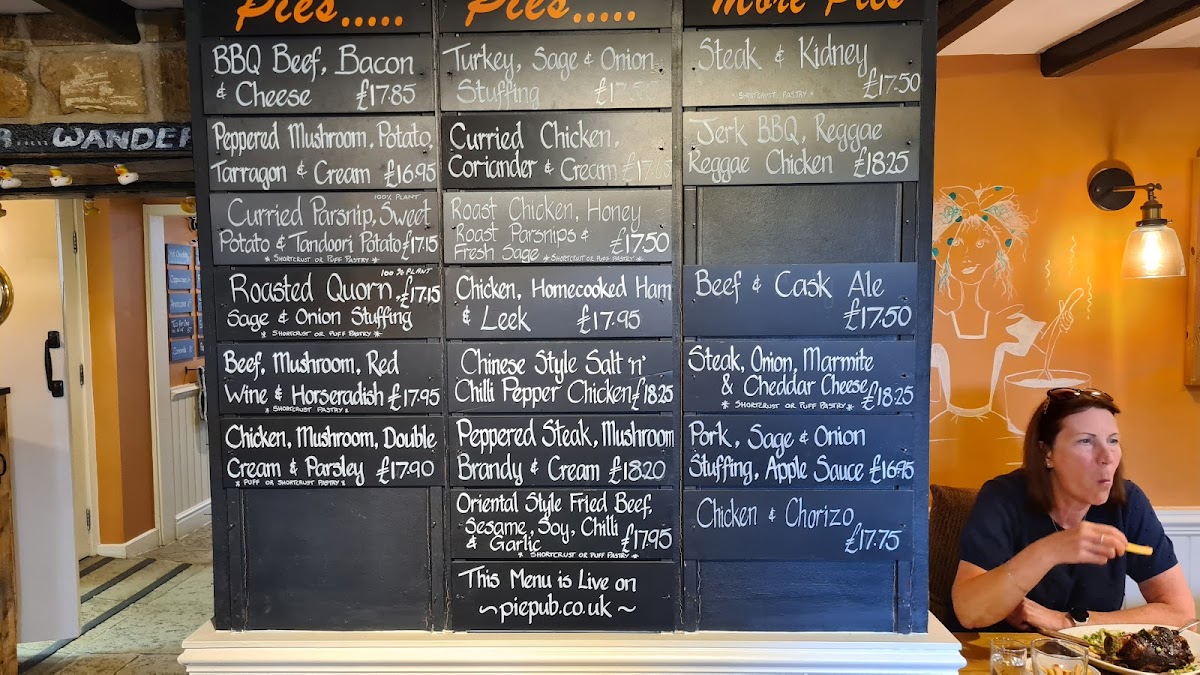 WANDER
Pies.....
BBQ Beef, Bacon
& Cheese £17.85
Peppered Mushroom, Potato,
Tarragon & Cream £16.95
100% PLANT
Curried Parsnip, Sweet
Potato & Tandoori Potato £17.15
* SHORTCRUST OR PUFF PASTRY *
100% PLANT
Roasted Quorn, £17.15
Sage & Onion Stuffing
* SHORTCRUST OR PUFF PASTRY *
Beef, Mushroom, Red
Wine & Horseradish £17.95
* SHORTCRUST PASTRY *
Chicken, Mushroom, Double
Cream & Parsley £17.90
* PUFF OR SHORTCRUST PASTRY *
Pies.....
Turkey, Sage & Onion
Stuffing
Curried Chicken,
Coriander & Cream
Roast Chicken, Honey
Roast Parsnips & £17.50
Fresh Sage * SHORTCRUST OR PUFF PASTRY *
Chicken, Homecooked Ham
& Leek £17.95
Chinese Style Salt 'n'
Chilli Pepper Chicken £18.25
Peppered Steak, Mushroom
Brandy & Cream £18.20
Oriental Style Fried Beef,
Sesame, Soy, Chilli
& Garlic £17.95
* SHORTCRUST OR PUFF PASTRY *
This Menu is Live on
~piepub.co.uk~
More Pies
Steak & Kidney
£17.50
* SHORTCRUST PASTRY *
Jerk BBQ, Reggae
Reggae Chicken £18.25
Beef & Cask Ale
£17.50
Steak, Onion, Marmite
& Cheddar Cheese £18.25
* SHORTCRUST OR PUFF PASTRY *
Pork, Sage & Onion
Stuffing, Apple Sauce £16.95
Chicken & Chorizo
£17.75